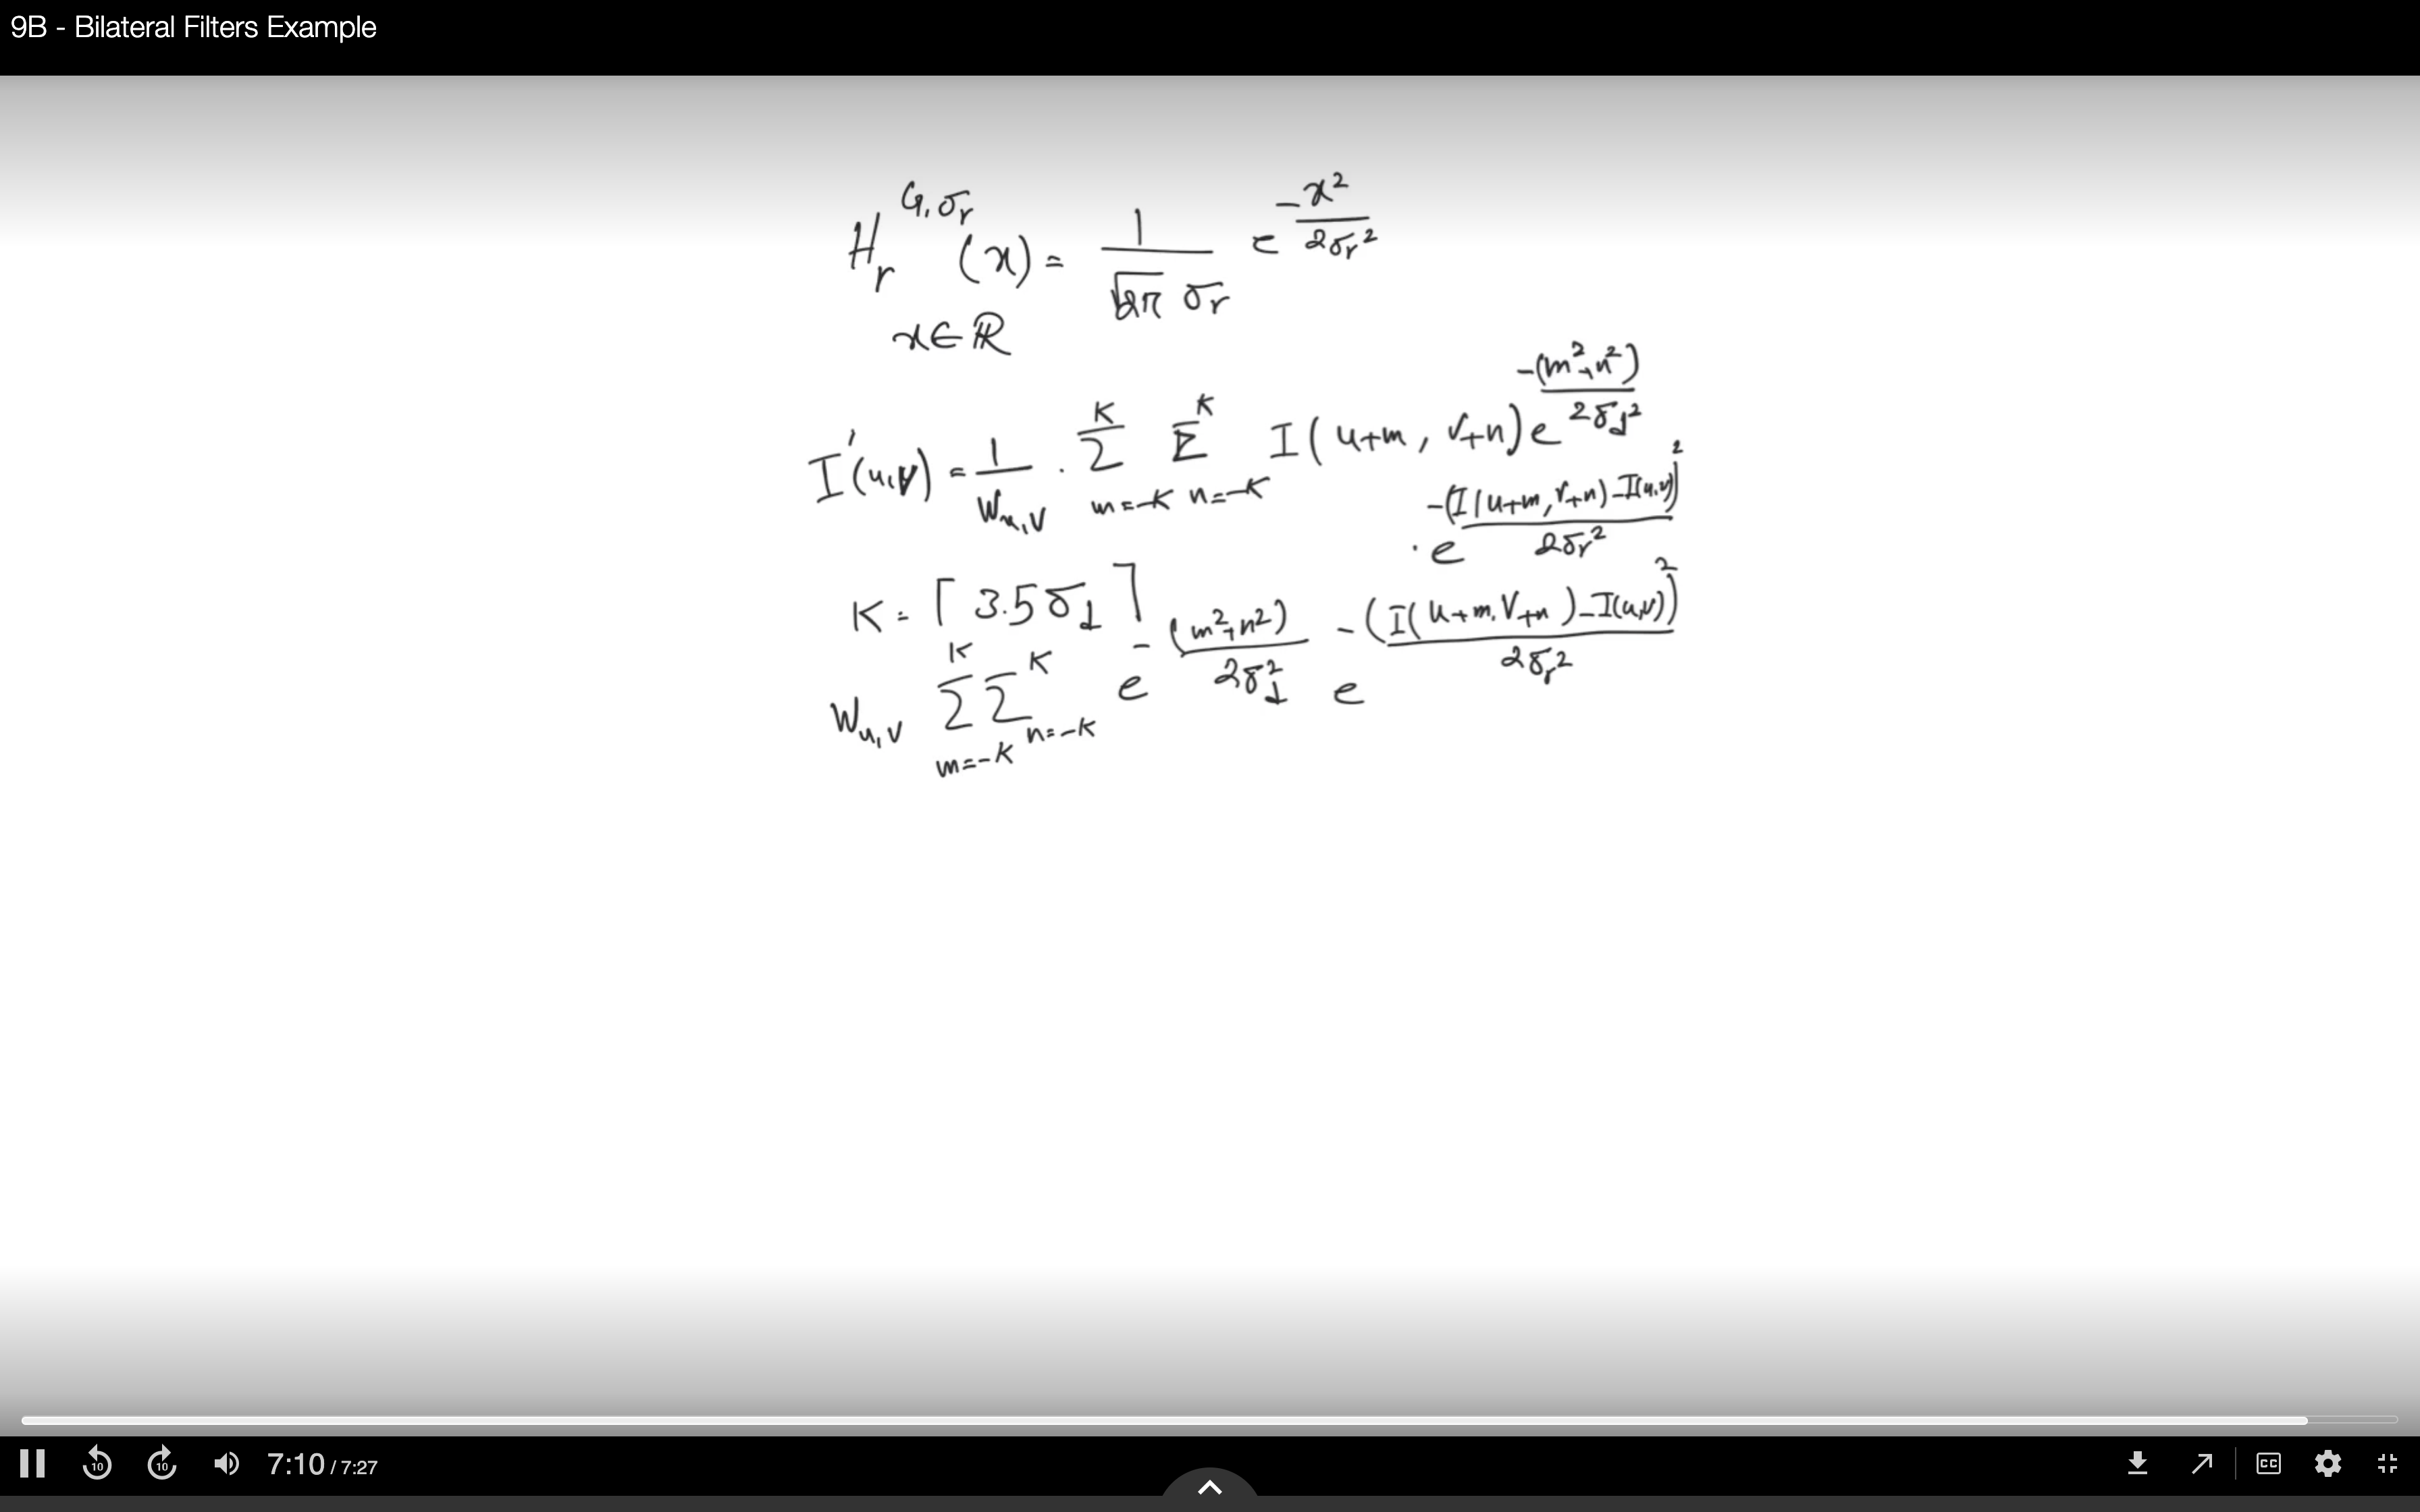 9B - Bilateral Filters Example
H_r^{G,σ_r} (x) = 1/(√2π σ_r) e^{-x²/(2σ_r²)}
x ∈ ℝ
I'(u,v) = 1/W_{u,v} · Σ_{m=-K}^{K} Σ_{n=-K}^{K} I(u+m, v+n) e^{-(m²+n²)/(2σ_d²)}
· e^{-(I(u+m, v+n) - I(u,v))²/(2σ_r²)}
K = ⌈3.5σ_d⌉
W_{u,v} Σ_{m=-K}^{K} Σ_{n=-K}^{K} e^{-(m²+n²)/(2σ_d²)} e^{-(I(u+m, v+n) - I(u,v))²/(2σ_r²)}
10 10 7:10 / 7:27 CC